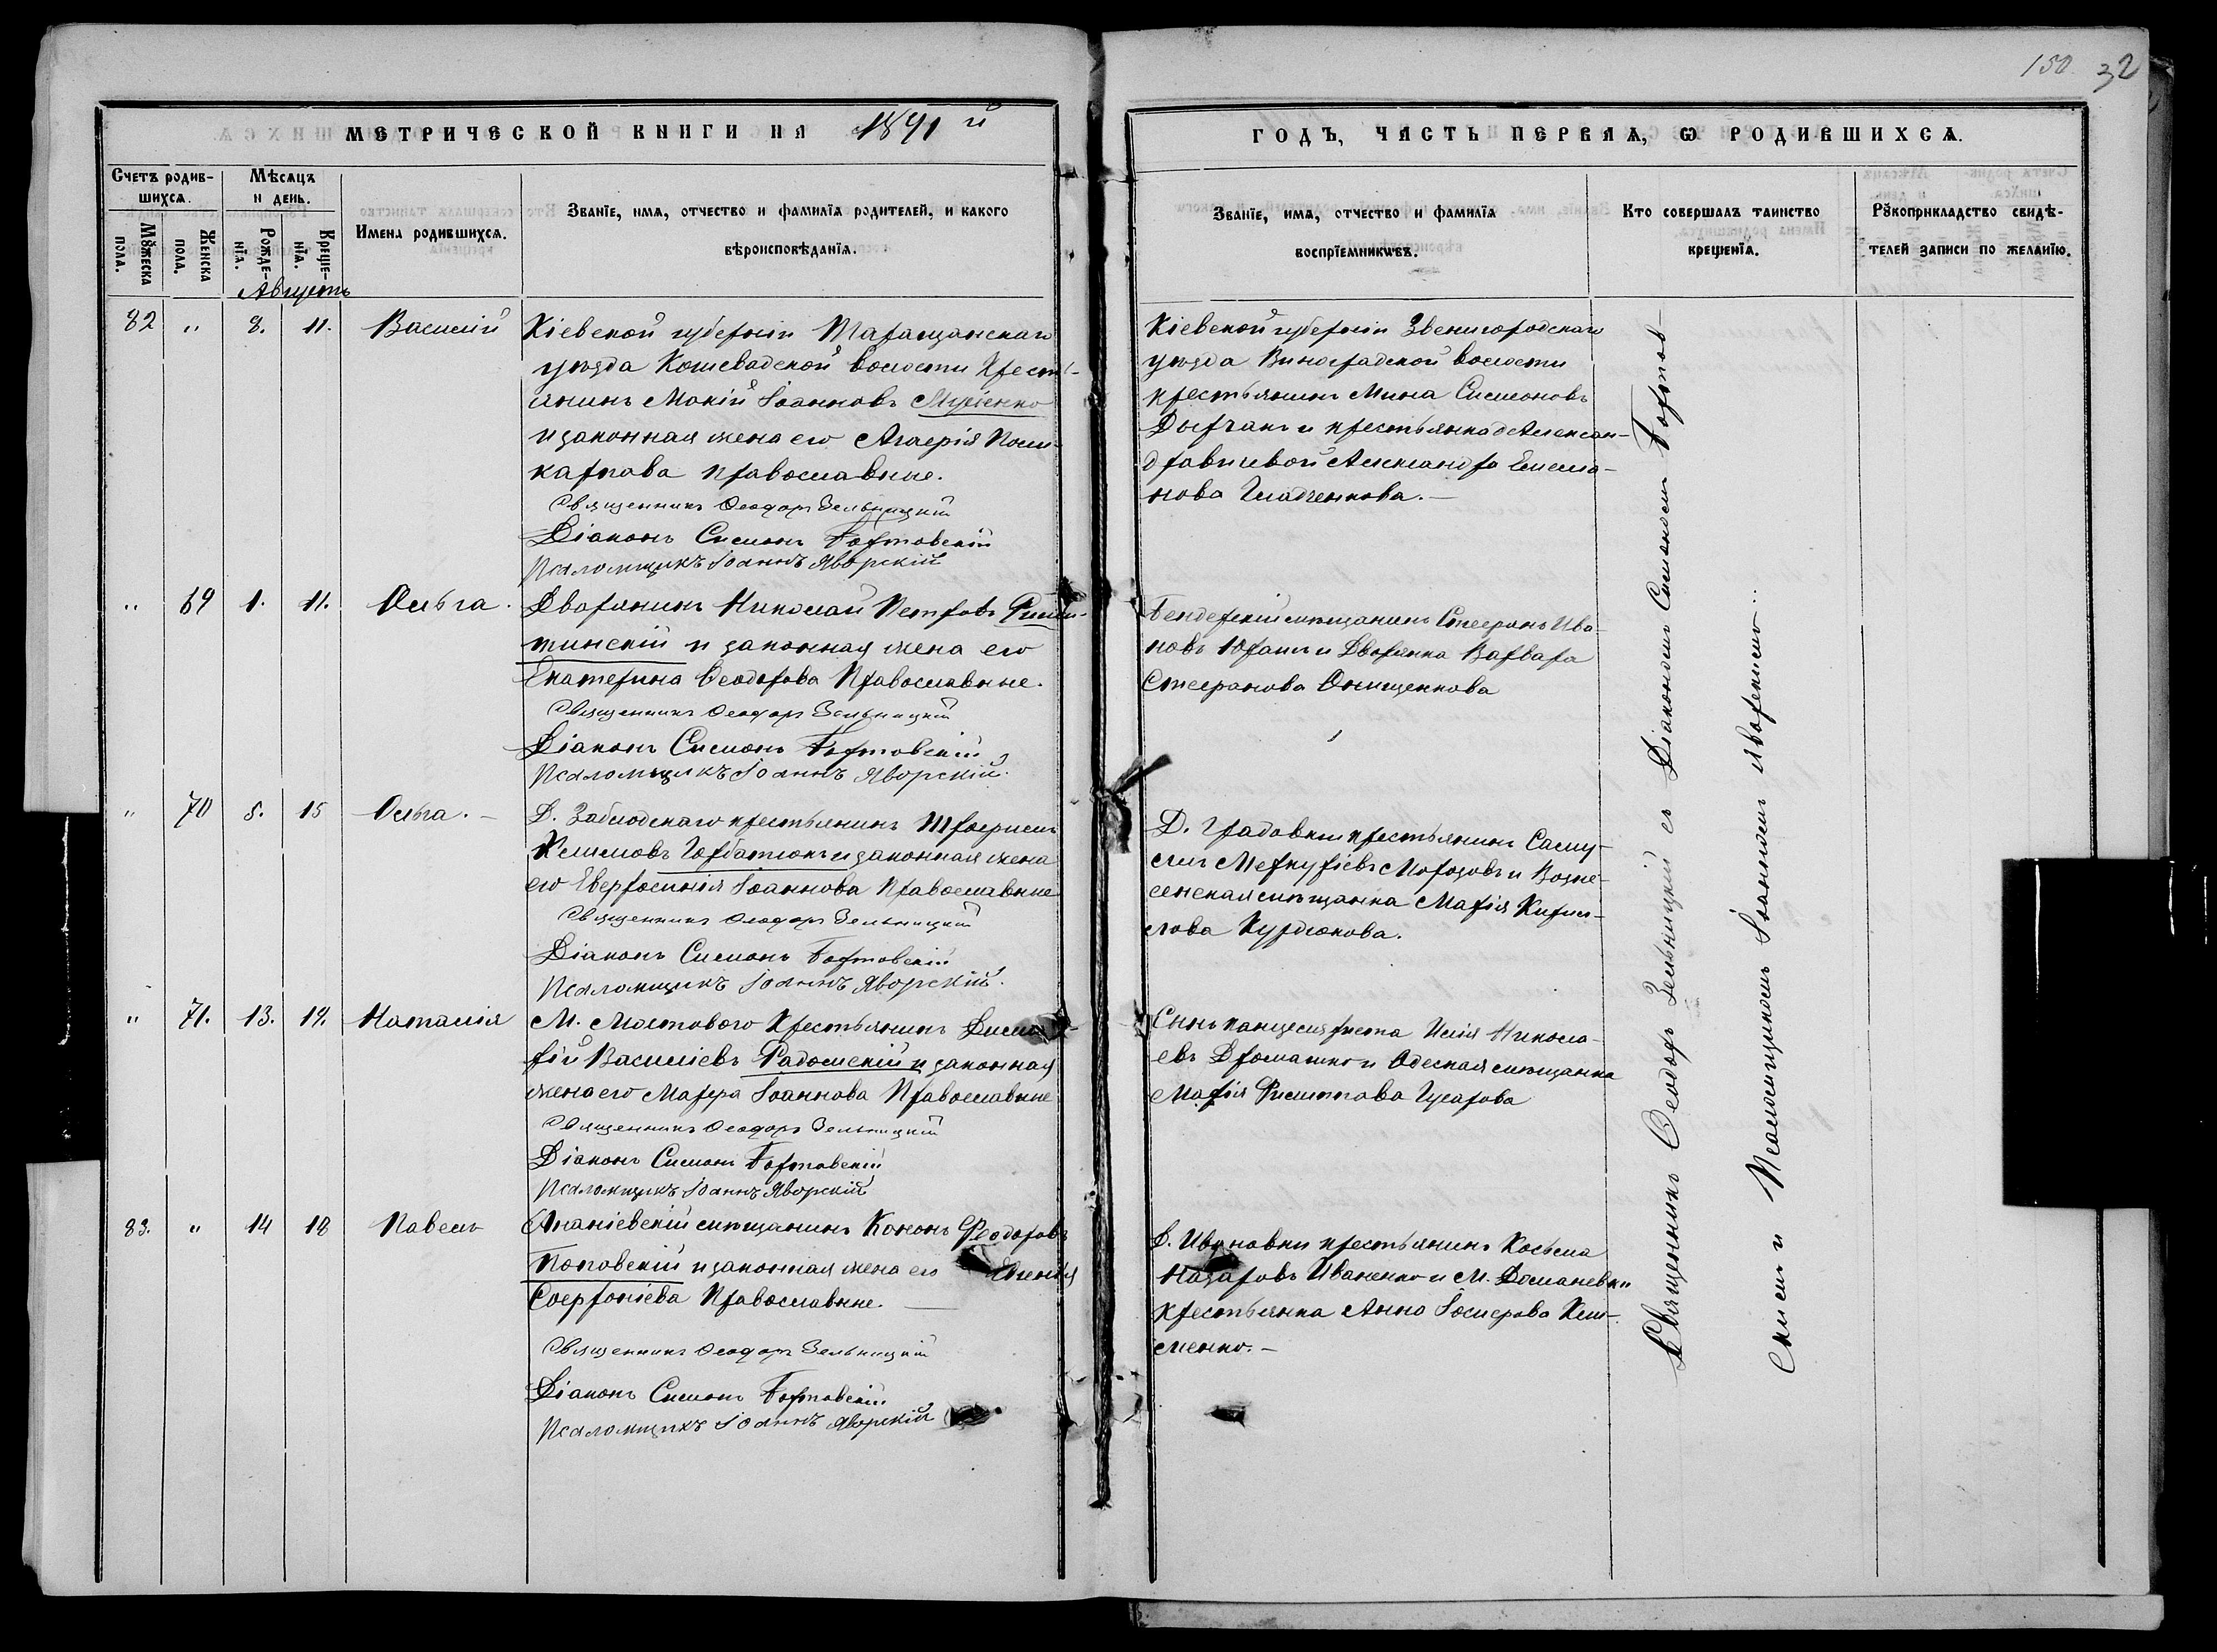 150. 32
МЕТРИЧЕСКОЙ КНИГИ НА 1891 й
ГОДЪ, ЧАСТЬ ПЕРВАЯ, Ѡ РОДИВШИХСѦ.
Счетъ родив-
шихсѧ.
Мѹжеска
пола.
Женска
пола.
Мѣсѧцъ
и день.
Рожде-
нїѧ.
Креще-
нїѧ.
Имена родившихсѧ.
Званїе, имѧ, отчество и фамилїѧ родителей, и какого
вѣроисповѣданїѧ.
Званїе, имѧ, отчество и фамилїѧ
воспрїемникѡвъ.
Кто совершалъ таинство
крещенїѧ.
Рѹкоприкладство свидѣ-
телей записи по желанїю.
Августъ
82 " 8. 11. Василій
Кіевской губерніи Таращанскаго
уѣзда Кошеватской волости Кресть-
янинъ Мокій Іоанновъ
и законная жена его Поли-
карпова православные.
Священникъ Ѳеодоръ Зельницкій
Діаконъ Симонъ Бортовскій
Псаломщикъ Іоаннъ Яворскій
Кіевской губерніи Звенигородскаго
уѣзда Виноградской волости
крестьянинъ Мина Симоновъ
и крестьянка д Алексан-
дра Емелья-
нова Гладченкова.—
" 69 1. 11. Ольга.
Дворянинъ Николай Петровъ Фили-
пинскій и законная жена его
Екатерина Ѳеодорова Православные.
Священникъ Ѳеодоръ Зельницкій
Діаконъ Симонъ Бортовскій
Псаломщикъ Іоаннъ Яворскій.
Бендерскій мѣщанинъ Стефанъ Ива-
новъ и Дворянка Варвара
Стефанова Онищенкова
" 70 5. 15 Ольга.—
Д. Заблодскаго крестьянинъ Трофимъ
Климовъ Горбатюкъ и законная жена
его Евфросинія Іоаннова Православные
Священникъ Ѳеодоръ Зельницкій
Діаконъ Симонъ Бортовскій
Псаломщикъ Іоаннъ Яворскій.
Д. Градовки крестьянинъ Саму-
илъ Меркуріевъ Морозовъ и Возне-
сенская мѣщанка Марія Кирил-
лова Курдюкова.
" 71. 13. 19. Наталія
М. Мостового Крестьянинъ
Василіевъ Радомскій и законная
жена его Марфа Іоаннова Православные
Священникъ Ѳеодоръ Зельницкій
Діаконъ Симонъ Бортовскій
Псаломщикъ Іоаннъ Яворскій
Сынъ канцеляриста Илія Никола-
евъ Дромашко и Одесская мѣщанка
Марія Филиппова Гусарова
83. " 14 18 Павелъ
Ананіевскій мѣщанинъ Кононъ Ѳеодоровъ
Поповскій и законная жена его
Софроніева Православные.—
Священникъ Ѳеодоръ Зельницкій
Діаконъ Симонъ Бортовскій
Псаломщикъ Іоаннъ Яворскій
Д. Ивановки крестьянинъ Косьма
Назаровъ Иваненко и М. Доманевки
крестьянка Анна Іосифова Кли-
менко.—
Священникъ Ѳеодоръ Зельницкій съ Діакономъ Симономъ Бортов-
скимъ и Псаломщикомъ Іоанномъ Яворскимъ.